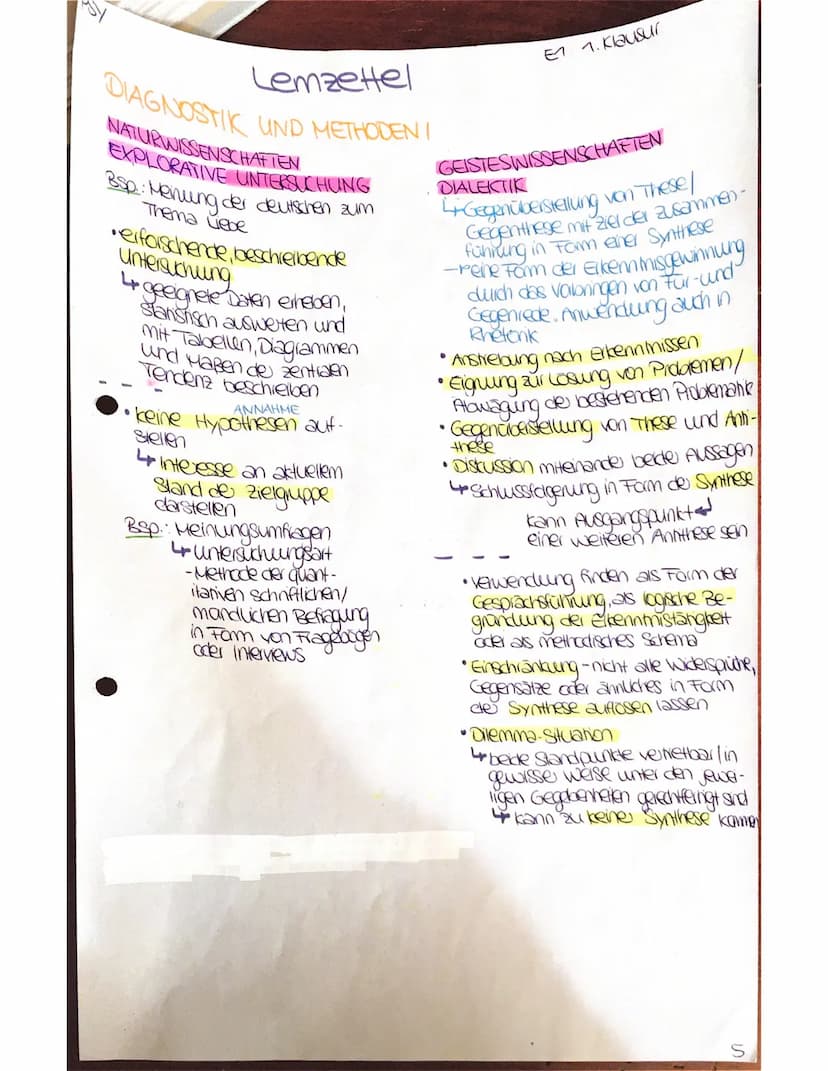 E1 1. Klausur
Lernzettel
DIAGNOSTIK UND METHODEN I
NATURWISSENSCHAFTEN
EXPLORATIVE UNTERSUCHUNG
Bsp.: Meinung der deutschen zum
Thema Liebe
• erforschende, beschreibende
Untersuchung
↳ geeignete Daten erheben,
statistisch auswerten und
mit Tabellen, Diagrammen
und Maßen der zentralen
Tendenz beschreiben
ANNAHME
• keine Hypothesen auf-
stellen
↳ Interesse an aktuellem
Stand der Zielgruppe
darstellen
Bsp.: Meinungsumfragen
↳ Untersuchungsart
- Methode der quant-
itativen schriftlichen/
mündlichen Befragung
in Form von Fragebögen
oder Interviews
GEISTESWISSENSCHAFTEN
DIALEKTIK
↳ Gegenüberstellung von These/
Gegenthese mit Ziel der Zusammen-
führung in Form einer Synthese
- reine Form der Erkenntnisgewinnung
durch das Vorbringen von Für- und
Gegenrede. Anwendung auch in
Rhetorik
• Anstrebung nach Erkenntnissen
• Eignung zur Lösung von Problemen/
Abwägung der bestehenden Problematik
• Gegenüberstellung von These und Anti-
these
• Diskussion miteinander beider Aussagen
↳ Schlussfolgerung in Form der Synthese
kann Ausgangspunkt ↲
einer weiteren Antithese sein
• Verwendung finden als Form der
Gesprächsführung, als logische Be-
gründung der Erkenntnistätigkeit
oder als methodisches Schema
• Einschränkung - nicht alle Widersprüche,
Gegensätze oder ähnliches in Form
der Synthese auflösen lassen
• Dilemma-Situation
↳ beide Standpunkte vertretbar/in
gewisser Weise unter den jewei-
ligen Gegebenheiten gerechtfertigt sind
↳ kann zu keiner Synthese kommen
S